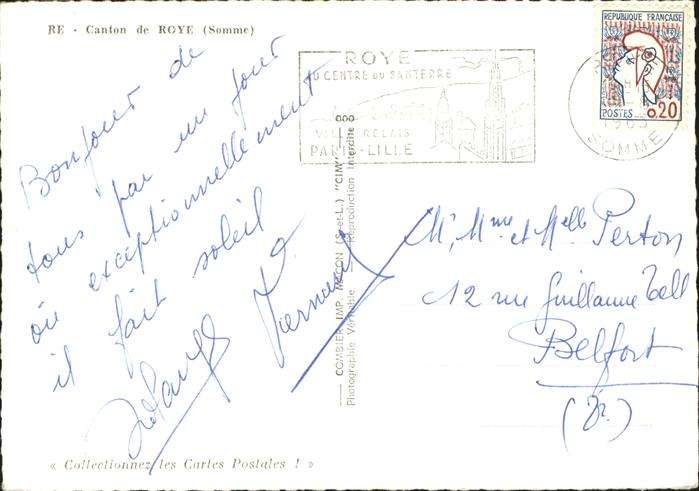 RE - Canton de ROYE (Somme)
Bonjour de
tous par un jour
où exceptionnellement
il fait soleil
« Collectionnez les Cartes Postales ! »
COMBIER IMP. MACON (S.-et-L.) "CIM"
Photographie Véritable - Reproduction Interdite
ROYE
AU CENTRE DU SANTERRE
VILLE RELAIS
PARIS-LILLE
SOMME
REPUBLIQUE FRANÇAISE
POSTES 0,20
Mr, Mme et Melle Perton
12 rue Guillaume Tell
Belfort